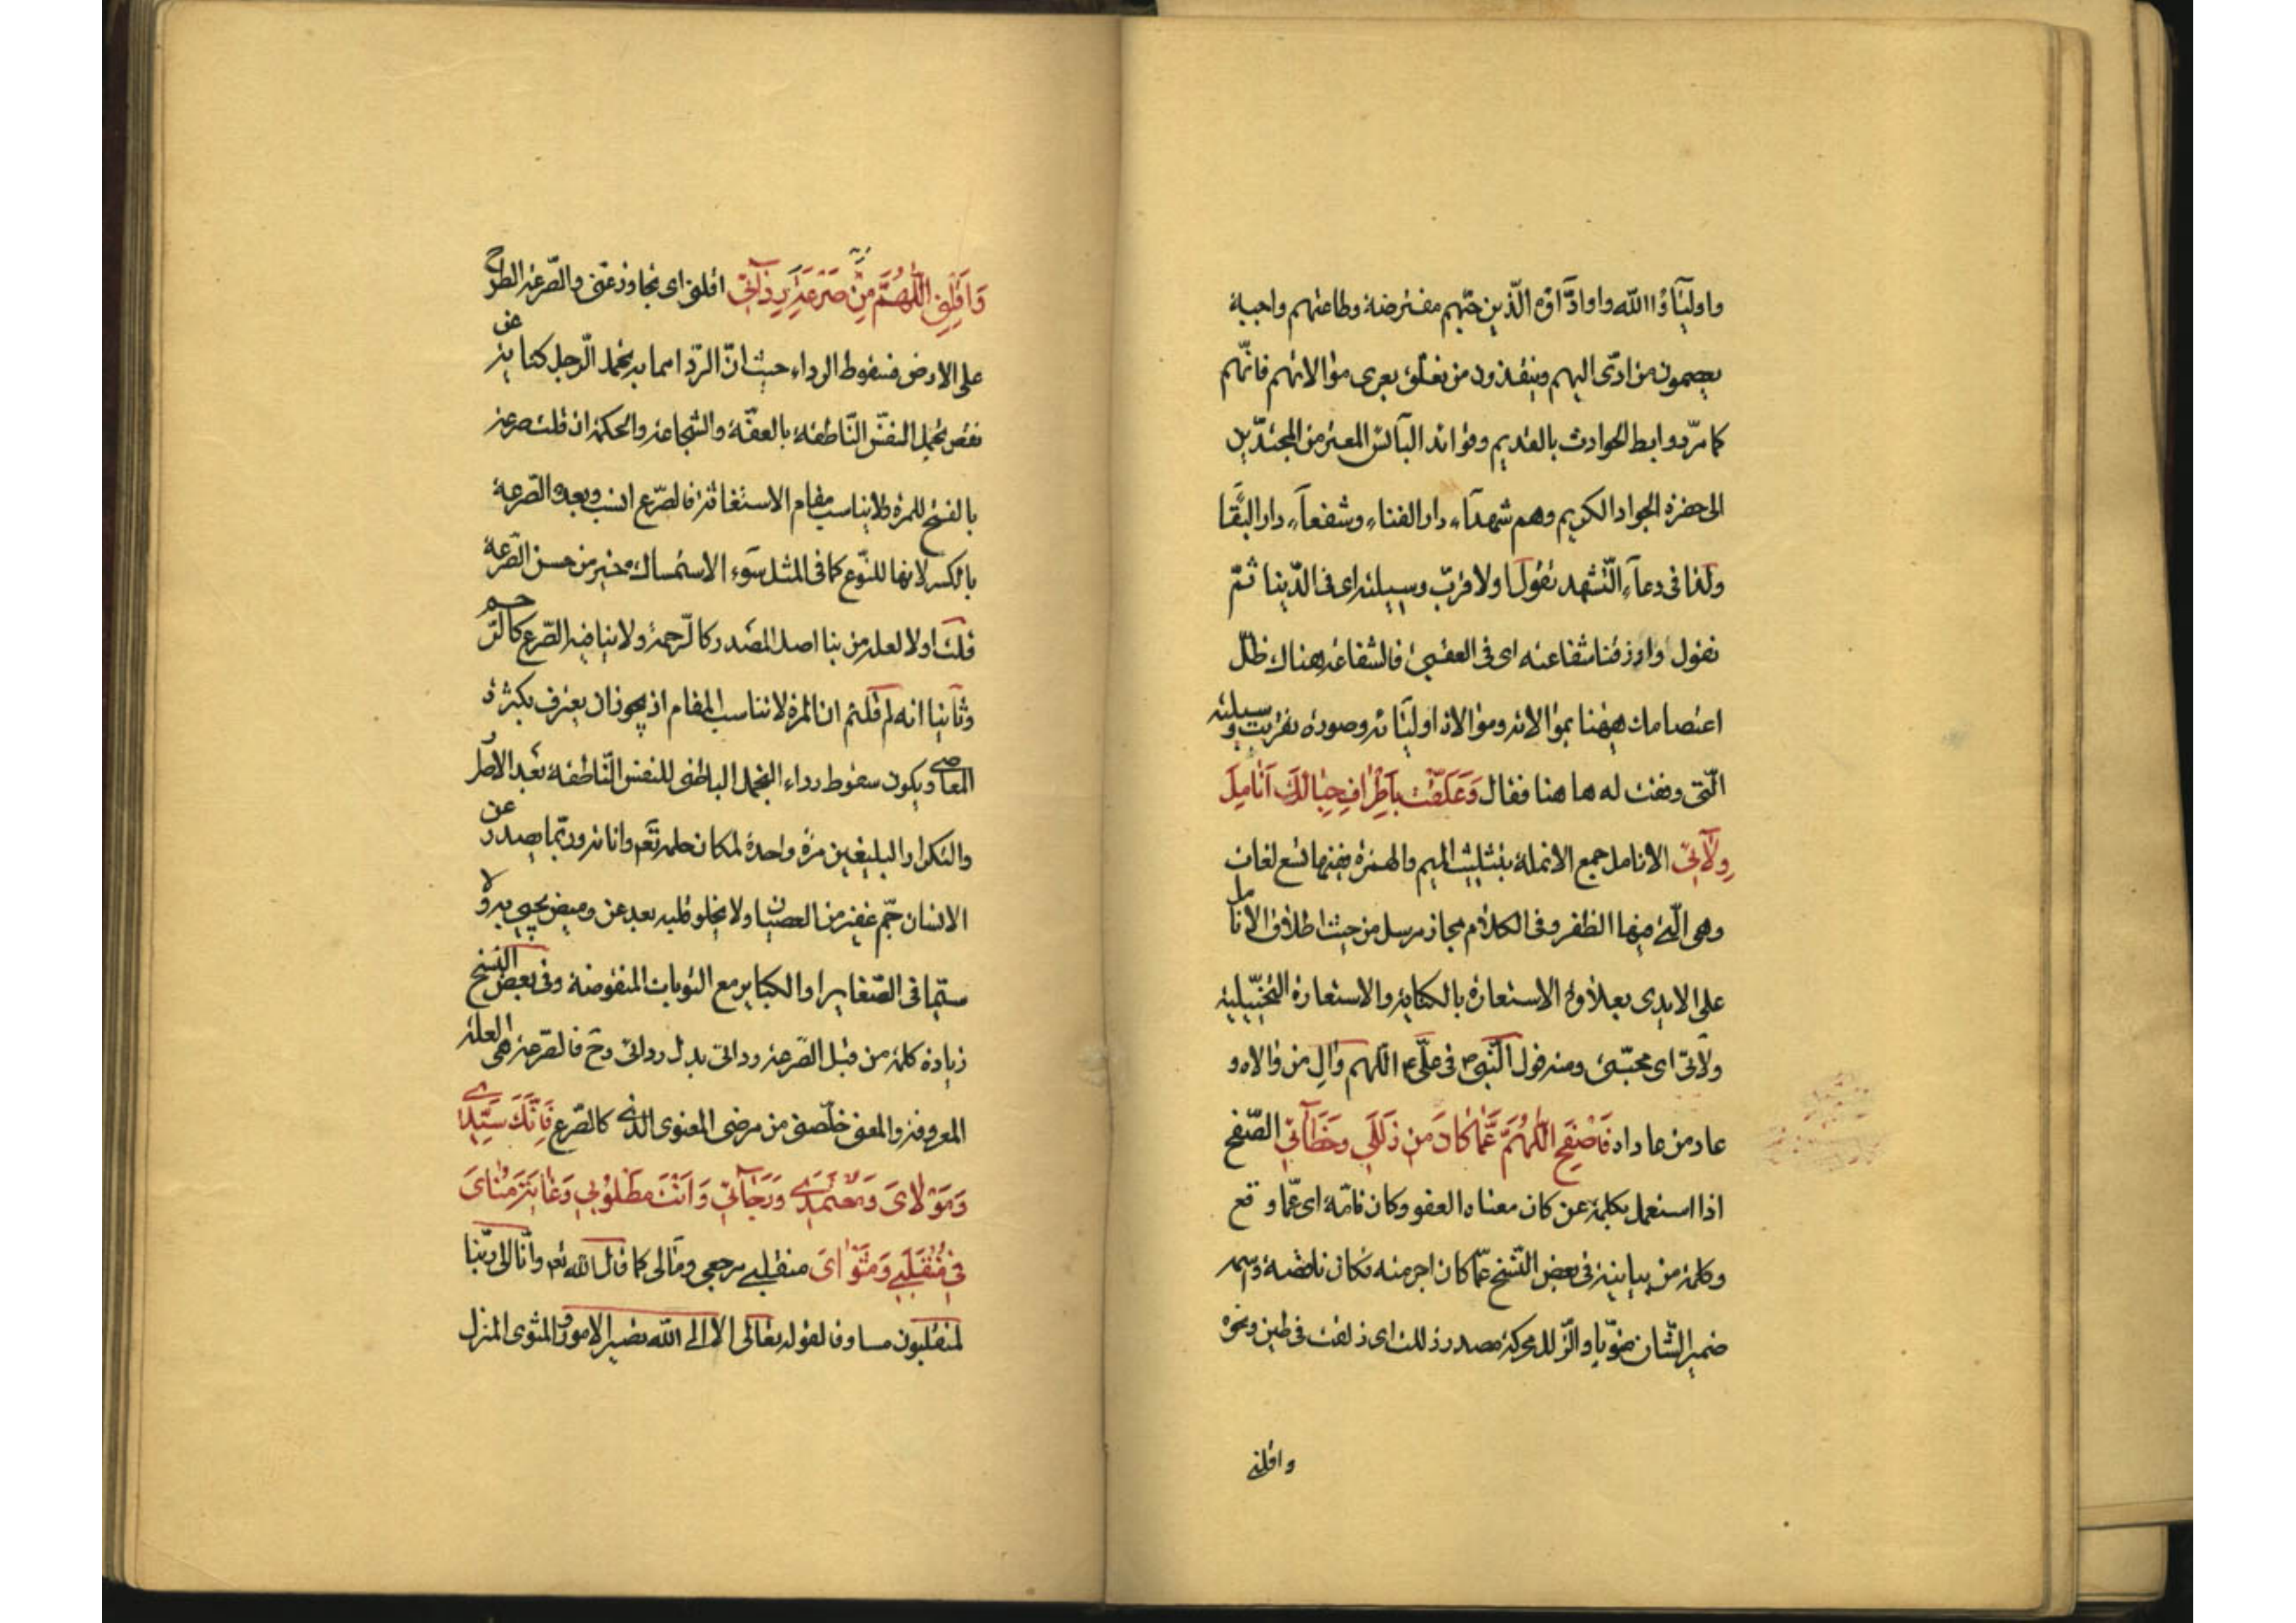 واوليٓاؤا الله واوادّٓاؤه الّذين حبّهم مفترضة وطاعتهم واجبة
يعصمون من ادّى اليهم وينقذون من تعلّق بعرى موالاتهم فانّهم
كما مرّ روابط الحوادث بالقديم وفوائد البآئس المعتر من المجتدين
الى حضرة الجواد الكريم وهم شهدآء دار الفناء وشفعآء دار البقٓا
ولذا فى دعآء التّشهد نقول اولا قرّب وسيلته اى فى الدّنيا ثمّ
نقول وارزقنا شفاعته اى فى العقبى فالشفاعة هناك ظلّ
اعتصامك ههنا بموالاته وموالاة اوليٓائه وصورة تقرّبت وسيلته
الّتى وقفت له ها هنا فقال وَعَلَّقْتُ بِاَطْرٰافِ حِبٰالِكَ اَنٰامِلَ
وِلآئى الانامل جمع الانملة بتثليث الميم والهمزة ففيها تسع لغات
وهى الّتى فيها الظفر وفى الكلام مجاز مرسل من حيث اطلاق الانامل
على الايدى بعلاوة الاستعارة بالكناية والاستعارة التخييلية
ولآئى اى محبّتى ومنه قول النّبى ص فى علّى ع اللهم وال من والاه و
عاد من عاداه فَاصْفَحِ اللّٰهُمَّ عَمّٰا كٰانَ مِنْ زَلَلي وَخَطآئى الصّفح
اذا استعمل بكلمة عن كان معناه العفو وكان تامّة اى عمّا وقع
وكلمة من بيانية فى بعض النّسخ عمّا كان اجرمته فكان ناقصة واسمه
ضمير الشّان منويّا والزّلل محركة مصدر زللت اى زلقت فى طين ونحوه
واقلنى
وَاَقِلْنِى اللّٰهُمَّ مِنْ صَرْعَةِ رِدٰآئى اقلنى اى تجاوز عنى والصّرعة الطرح
على الارض فسقوط الرداء حيث انّ الرّدا مما به تجمل الرّجل كناية عن
نقص تجمل النفس النّاطقة بالعفّة والشجاعة والحكمة ان قلت صرعة
بالفتح للمرة ولا يناسب مقام الاستغاثة فالصّرع انسب وبعده الصّرعة
بالكسر لانها للنّوع كما فى المثل سوٓء الاستمساك خير من حسن الصّرعة
قلت اولا لعله من بنا اصل المصدر كالرّحمة ولا ينافيه الصّرع كالرّحم
وثانيا انه لم قلتم ان المرة لا تناسب المقام اذ يجوز ان يعترف بكثرة
المعاصى ويكون سقوط رداء التجمل الباطنى للنفس النّاطقة بعد الاصرار
والتكرار البليغين مرة واحدة لمكان حلمه تعم واناته وربّما يصدر عن
الانسان جمّ غفير من العصيان ولا يخلو قلبه بعد عن وميض يحيى به ولا
سيّما فى الصّغاير او الكباير مع التوبات المنقوضة وفى بعض النسخ
زيادة كلمة من قبل الصّرعة ودائى بدل ردائى وح فالصّرعة هى العلة
المعروفة والمعنى خلّصنى من مرضى المعنوى الذى كالصّرع فَاِنَّكَ سَيِّدى
وَمَوْلاٰىَ وَمُعْتَمَدى وَرَجآئى وَاَنْتَ مَطْلُوبى وَغٰايَةُ مُنٰاىَ
فى مُنْقَلَبى وَمَثْوٰاىَ منقلبى مرجعى ومآلى كما قال الله تعم وانّا الى ربّنا
لمنقلبون مساوقا لقوله تعالى الا الى الله تصير الامور والمثوى المنزل